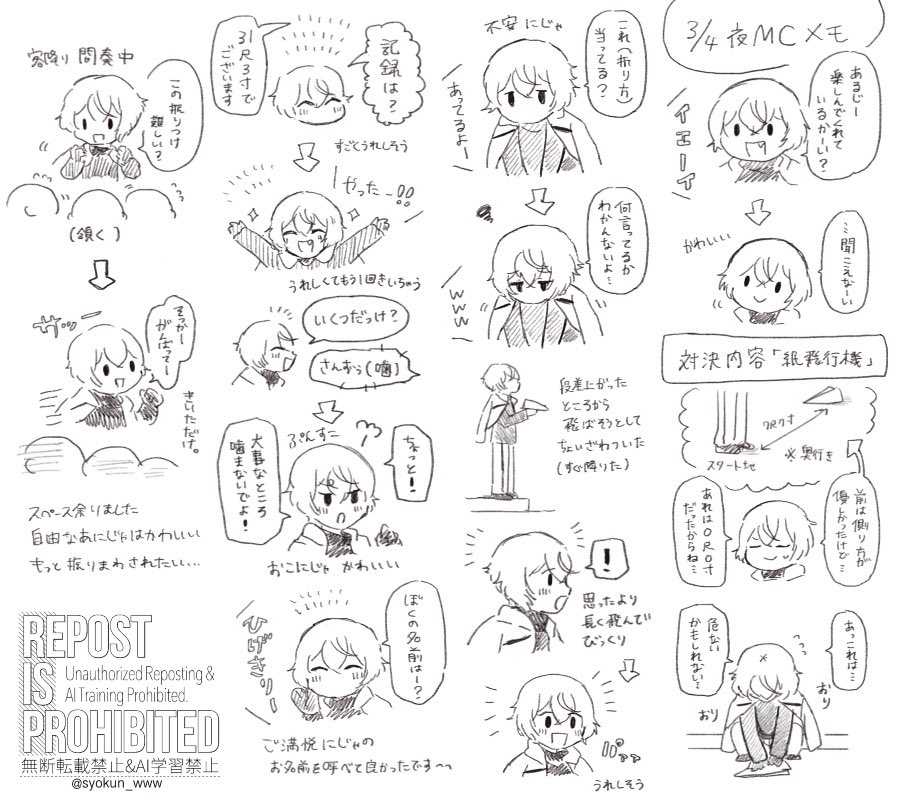 3/4 夜MCメモ
あるじー
楽しんでくれて
いるかーい?
イエーイ
…聞こえなーい
かわいいい
対決内容「紙飛行機」
スタート地
※奥行き
前は測り方が
優しかったけど…
あれは0尺0寸
だったからね…
あっこれは…
危ない
かもしれない…
おり
おり
不安にじゃ
これ(振り方)
当ってる?
あってるよー
何言ってるか
わかんないよ…
www
段差上がった
ところから
飛ばそうとして
ちょいざわついた
(すぐ降りた)
!
思ったより
長く飛んで
びっくり
うれしそう
記録は?
31尺3寸で
ございます
すごくうれしそう
やったー!!
うれしくてもう1回きいちゃう
いくつだっけ?
さんずら(噛)
ぷんすこ
ちょっと!
大事なところ
噛まないでよ!
おこにじゃ かわいいい
ぼくの名前はー?
ひげきりー
ご満悦にじゃの
お名前を呼べて良かったです〜っ
客降り 間奏中
この振りつけ
難しい?
(頷く)
サッー
そっかー
がんばってー
きいただけ。
スペース余りました
自由なあにじゃはかわいいい
もっと振りまわされたいい…
REPOST
IS
PROHIBITED
Unauthorized Reposting &
AI Training Prohibited.
無断転載禁止&AI学習禁止
@syokun_www